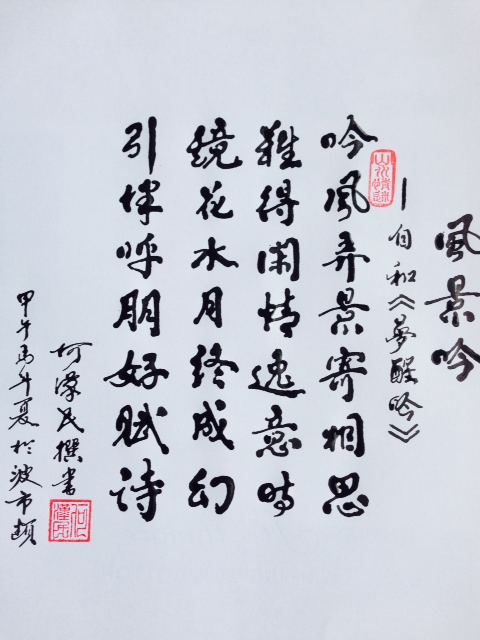 風景吟
—自和《夢醒吟》
吟風弄景寄相思
難得閑情逸意時
鏡花水月終成幻
引伴呼朋好賦詩
何漢民撰書
甲午馬年夏於波市頓